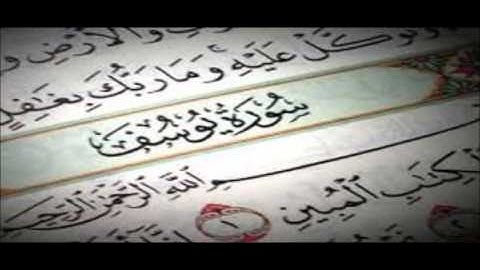 وَالْأَرْضِ
وَتَوَكَّلْ عَلَيْهِ وَمَا رَبُّكَ بِغَٰفِلٍ
سُورَةُ يُوسُفَ
بِسْمِ اللَّهِ الرَّحْمَٰنِ الرَّحِيمِ
الْكِتَٰبِ الْمُبِينِ ١ إِنَّا
٢